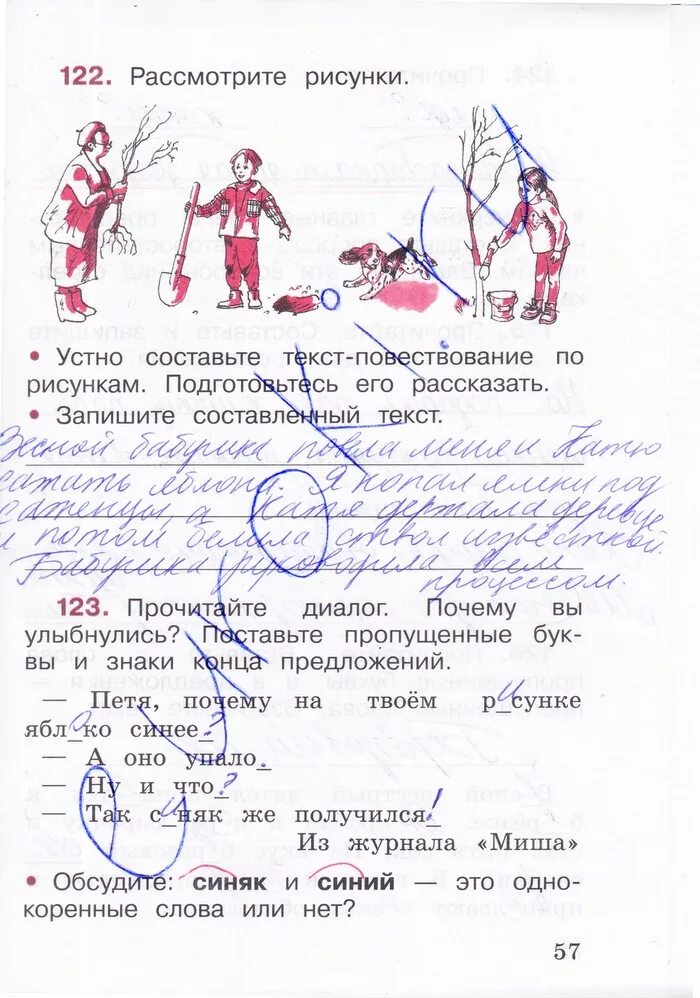 122. Рассмотрите рисунки.
• Устно составьте текст-повествование по
рисункам. Подготовьтесь его рассказать.
• Запишите составленный текст.
Весной бабушка повела меня и Катю
сажать яблони. Я копал ямки под
саженцы, а Катя держала деревце
и потом белила ствол известкой.
Бабушка руководила всем
процессом.
123. Прочитайте диалог. Почему вы
улыбнулись? Поставьте пропущенные бук-
вы и знаки конца предложений.
— Петя, почему на твоём рисунке
яблоко синее?
— А оно упало.
— Ну и что?
— Так синяк же получился!
Из журнала «Миша»
• Обсудите: синяк и синий — это одно-
коренные слова или нет?
57